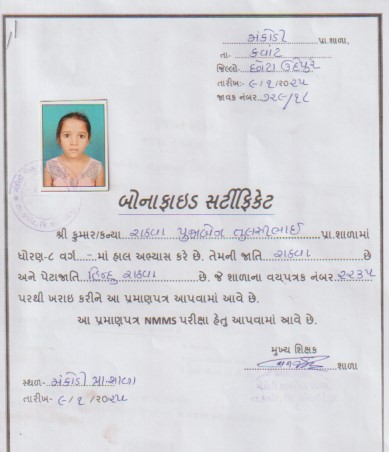 મંકોડી પ્રા.શાળા,
તા- કવાંટ
જિલ્લો. છોટા ઉદેપુર
તારીખ:- ૯/૧/૨૦૨૫
જાવક નંબર ૭૨૯/૧૮
બોનાફાઇડ સર્ટીફિકેટ
શ્રી કુમાર/કન્યા રાઠવા પુજાબેન તુલસીભાઈ પ્રા.શાળામાં
ધોરણ-૮ વર્ગ -.માં હાલ અભ્યાસ કરે છે. તેમની જાતિ રાઠવા છે
અને પેટાજાતિ હિન્દુ રાઠવા છે. જે શાળાના વયપત્રક નંબર ૨૨૩૫
પરથી ખરાઇ કરીને આ પ્રમાણપત્ર આપવામાં આવે છે.
આ પ્રમાણપત્ર NMMS પરીક્ષા હેતુ આપવામાં આવે છે.
મુખ્ય શિક્ષક
શાળા
સ્થળ- મંકોડી પ્રા.શાળા
તારીખ- ૯/૧/૨૦૨૫